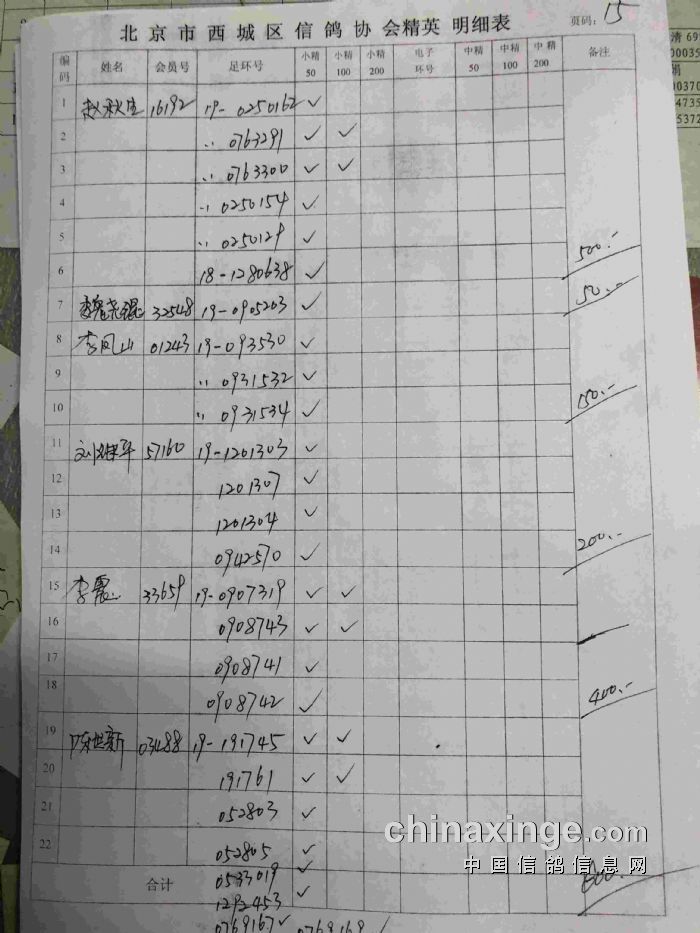 北京市西城区信鸽协会精英 明细表 页码: 15
编码 姓名 会员号 足环号 小精50 小精100 小精200 电子环号 中精50 中精100 中精200 备注
1 赵秋生 16192 19-0250162 ✓
2 〃 0763291 ✓ ✓
3 〃 0763300 ✓ ✓
4 〃 0250154 ✓
5 〃 0250129 ✓ 500.-
6 18-1280638 ✓
7 32548 19-0905203 ✓ 50.-
8 李凤山 01243 19-093530 ✓
9 〃 0931532 ✓
10 〃 0931534 ✓ 150.-
11 57160 19-1201303 ✓
12 1201307 ✓
13 1201304 ✓
14 0942570 ✓ 200.-
15 李震 33659 19-0907319 ✓ ✓
16 0908743 ✓ ✓
17 0908741 ✓
18 0908742 ✓ 400.-
19 陈世新 03488 19-191745 ✓ ✓
20 191761 ✓ ✓
21 052803 ✓
22 052805 ✓
合计 0533019 ✓ 600.-
1292453 ✓
0769167 ✓ 0769169 ✓
chinaxinge.com
中国信鸽信息网